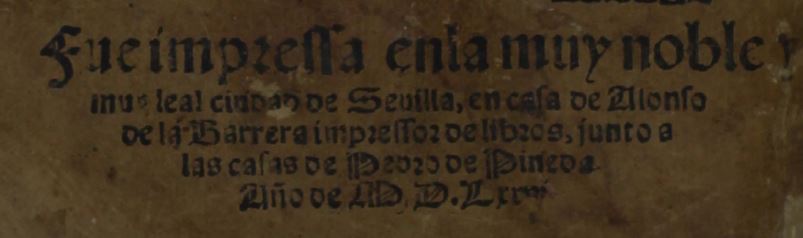 Fue impressa enla muy noble y
muy leal ciudad de Seuilla, en casa de Alonso
de la Barrera impressor de libros, junto a
las casas de Pedro de Pineda
Año de M. D. Lxx